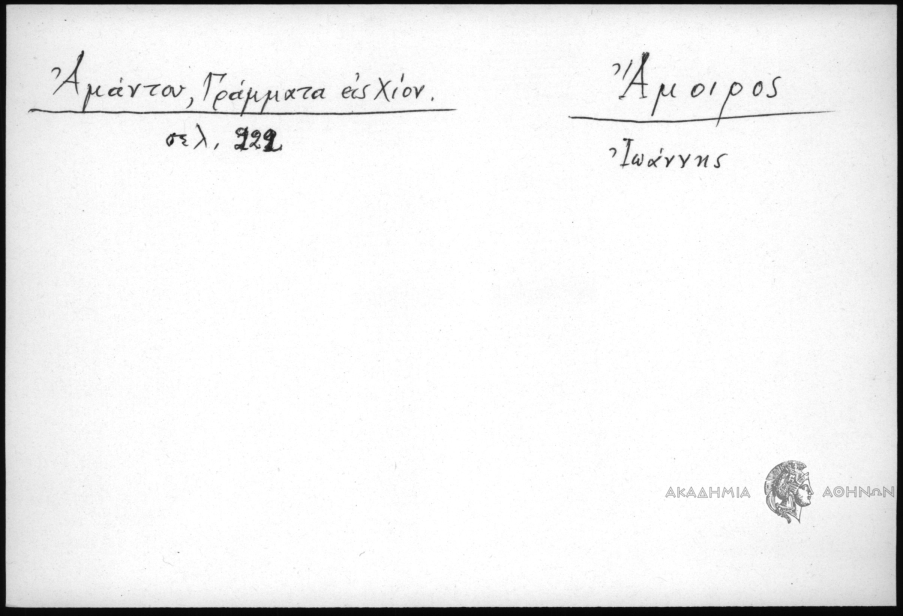 Ἀμάντου, Γράμματα εἰς Χίον.
σελ. 222
Ἄμοιρος
Ἰωάννης
ΑΚΑΔΗΜΙΑ ΑΘΗΝΩΝ